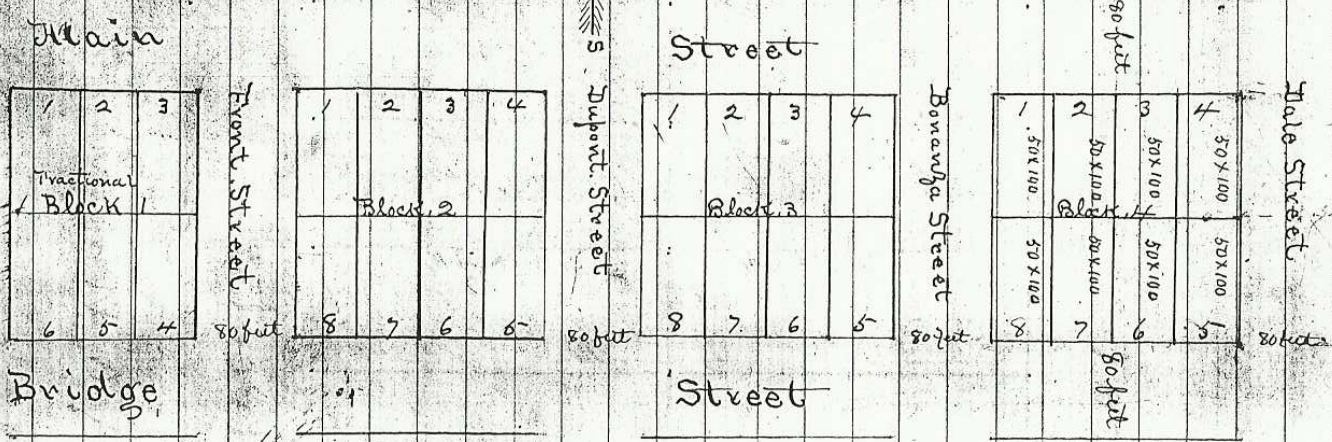 Main Street
80 feet
S
1 2 3
Fractional
Block 1
6 5 4
Front Street
80 feet
1 2 3 4
Block 2
8 7 6 5
Dupont Street
80 feet
1 2 3 4
Block 3
8 7 6 5
Bonanza Street
80 feet
1 2 3 4
50x100 50x100 50x100 50x100
Block 4
50x100 50x100 50x100 50x100
8 7 6 5
Dale Street
80 feet
Bridge Street
80 feet